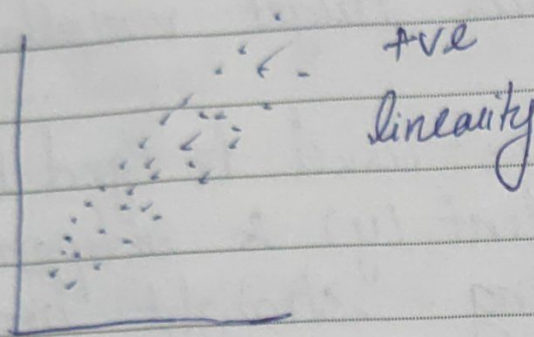 +ve
linearity